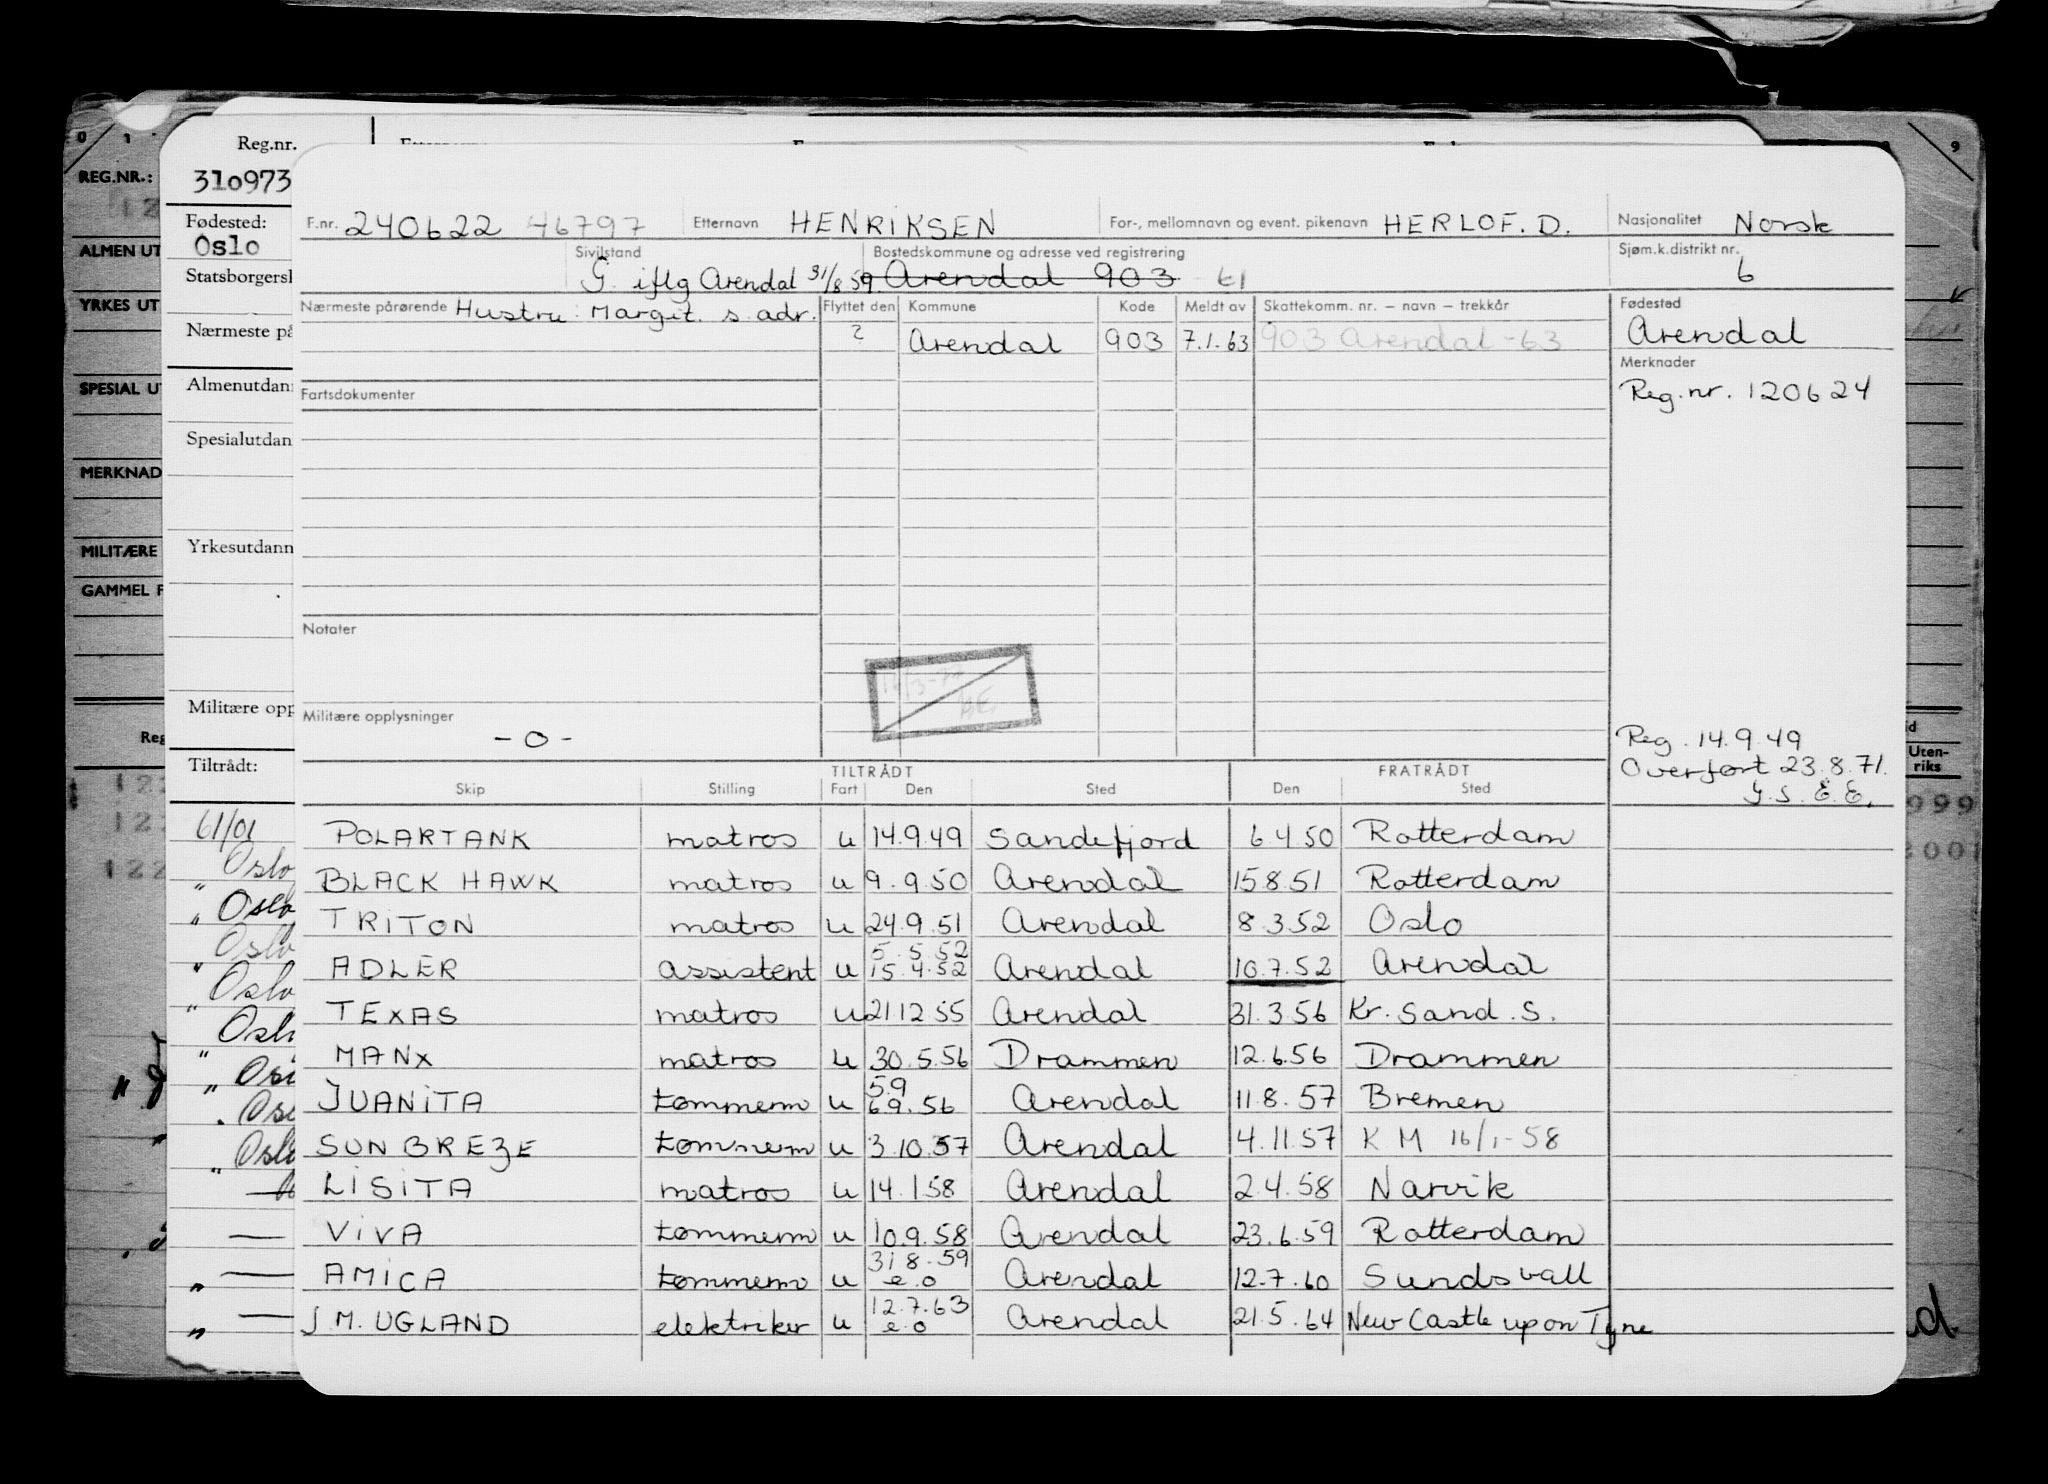 0 1 9
REG.NR.:
ALMEN UT
YRKES UT
SPESIAL UT
MERKNAD
MILITÆRE
GAMMEL F
Reg
Uten-
riks
Reg.nr.
310973
Fødested:
Oslo
Statsborgersk
Nærmeste på
Almenutdann
Spesialutdan
Yrkesutdann
Militære opp
Tiltrådt:
61/01
Oslo
" Oslo
" Oslo
F.nr. 240622 46797 Etternavn HENRIKSEN For-, mellomnavn og event. pikenavn HERLOF. D. Nasjonalitet Norsk
Sivilstand Bostedskommune og adresse ved registrering Sjøm.k.distrikt nr.
G. iflg Arendal 31/8 59. Arendal 903 61 6
Nærmeste pårørende Hustru: Margit. s. adr. Flyttet den Kommune Kode Meldt av Skattekomm. nr. – navn – trekkår Fødested
? Arendal 903 7.1.63 903 Arendal -63 Arendal
Merknader
Fartsdokumenter Reg.nr. 120624
Notater
Militære opplysninger
- 0 -
Reg. 14.9.49
Overført 23.8.71.
TILTRÅDT FRATRÅDT
Skip Stilling Fart Den Sted Den Sted
POLARTANK matros u 14.9.49 Sandefjord 6.4.50 Rotterdam
BLACK HAWK matros u 9.9.50 Arendal 15.8.51 Rotterdam
TRITON matros u 24.9.51 Arendal 8.3.52 Oslo
5.5.52
ADLER assistent u 15.4.52 Arendal 10.7.52 Arendal
TEXAS matros u 21.12.55 Arendal 31.3.56 Kr. Sand. S.
MANX matros u 30.5.56 Drammen 12.6.56 Drammen
5.9
JUANITA tømmerm u 6.9.56 Arendal 11.8.57 Bremen
SUN BREZE tømmerm u 3.10.57 Arendal 4.11.57 K M 16/1-58
LISITA matros u 14.1.58 Arendal 2.4.58 Narvik
VIVA tømmerm u 10.9.58 Arendal 23.6.59 Rotterdam
31.8.59
AMICA tømmerm u e.o Arendal 12.7.60 Sundsvall
12.7.63
J.M. UGLAND elektriker u e.o Arendal 21.5.64 New Castle upon Tyne